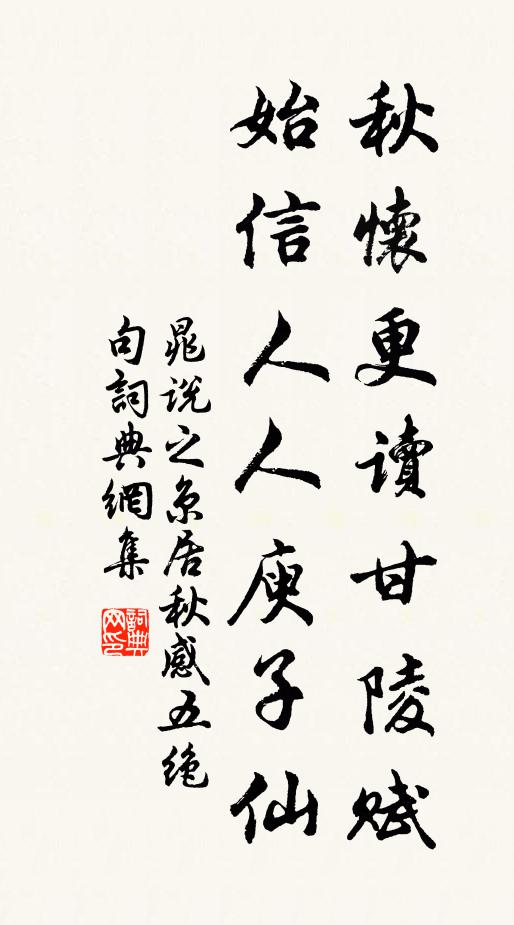 秋懷更讀甘陵賦
始信人人庾子仙
晁說之京居秋感五絕
句詞典網集
詞典
网印